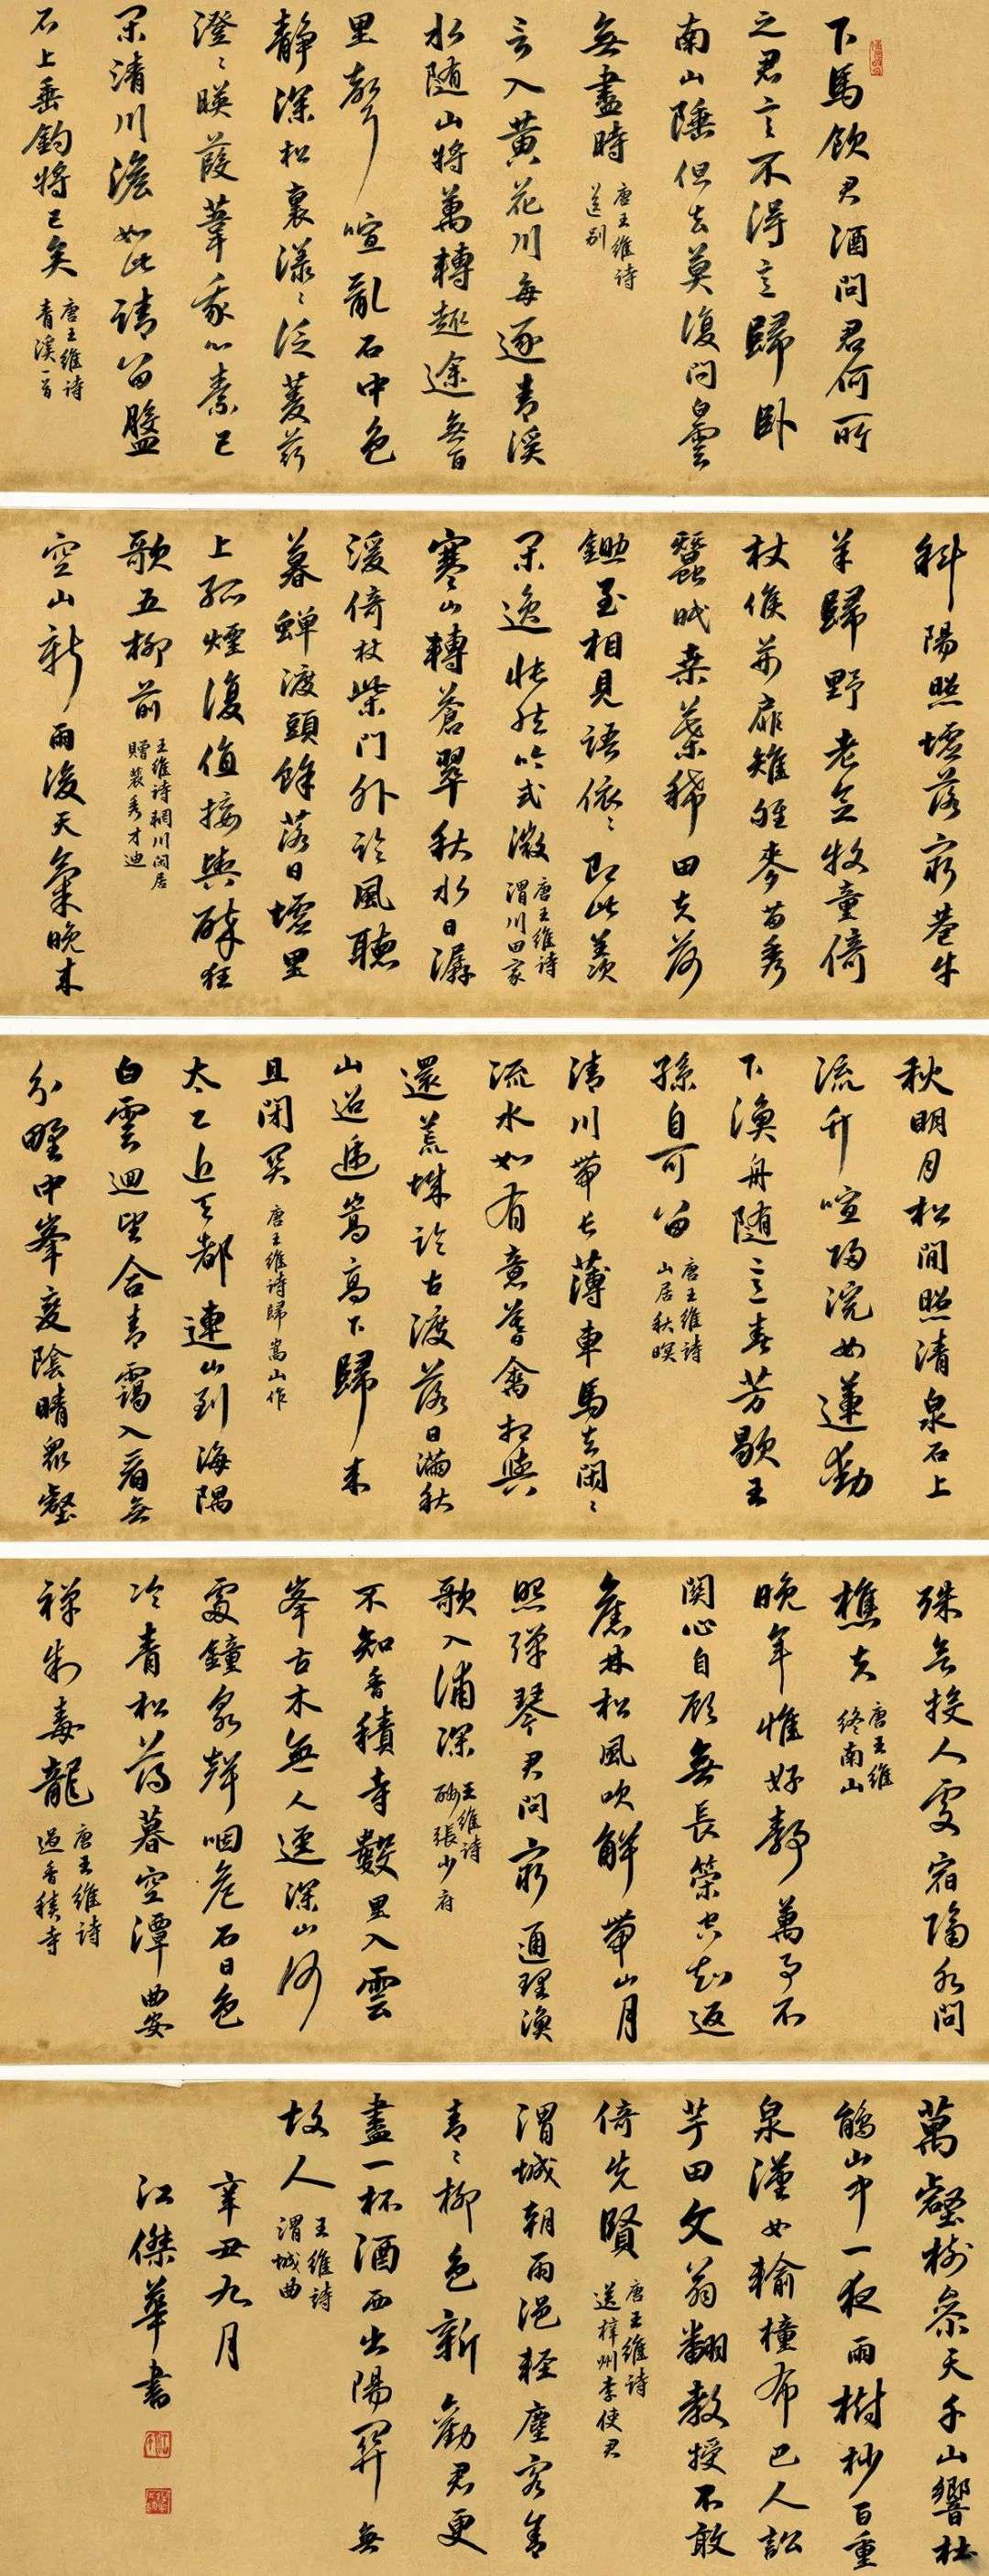 下馬飲君酒問君何所
之君言不得意歸卧
南山陲但去莫復問白雲
無盡時
唐王維詩
送别
言入黄花川每逐青溪
水随山將萬轉趣途無百
里聲喧亂石中色
静深松裏漾〻泛菱荇
澄〻映葭葦我心素已
閑清川澹如此請留盤
石上垂釣將已矣
唐王維詩
青溪一首
斜陽照墟落窮巷牛
羊歸野老念牧童倚
杖候荆扉雉雊麥苗秀
蠶眠桑葉稀田夫荷
鋤至相見語依〻即此羨
閑逸悵然吟式微
唐王維詩
渭川田家
寒山轉蒼翠秋水日潺
湲倚杖柴門外臨風聽
暮蟬渡頭餘落日墟里
上孤煙復值接輿醉狂
歌五柳前
王維詩輞川閑居
贈裴秀才迪
空山新雨後天氣晚来
秋明月松間照清泉石上
流竹喧歸浣女蓮動
下漁舟随意春芳歇王
孫自可留
唐王維詩
山居秋暝
清川帶長薄車馬去閑〻
流水如有意暮禽相與
還荒城臨古渡落日滿秋
山迢遞嵩高下歸来
且閉關
唐王維詩歸嵩山作
太乙近天都連山到海隅
白雲迴望合青靄入看無
分野中峯變陰晴衆壑
殊欲投人處宿隔水問
樵夫
唐王維
終南山
晚年惟好静萬事不
關心自顧無長策空知返
舊林松風吹解帶山月
照彈琴君問窮通理漁
歌入浦深
王維詩
酬張少府
不知香積寺數里入雲
峯古木無人逕深山何
處鐘泉聲咽危石日色
冷青松薄暮空潭曲安
禅制毒龍
唐王維詩
過香積寺
萬壑樹參天千山響杜
鵑山中一夜雨樹杪百重
泉漢女輸橦布巴人訟
芋田文翁翻教授不敢
倚先賢
唐王維詩
送梓州李使君
渭城朝雨浥輕塵客舍
青〻柳色新勸君更
盡一杯酒西出陽關無
故人
王維詩
渭城曲
辛丑九月
江傑華書